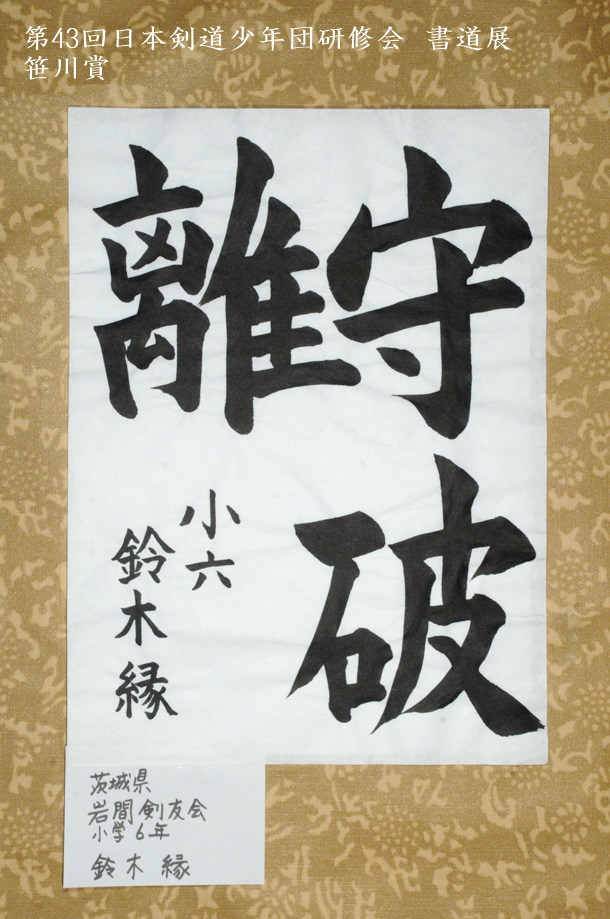 第43回日本剣道少年団研修会　書道展
笹川賞
守破
離
小六
鈴木縁
茨城県
岩間剣友会
小学6年
鈴木 縁